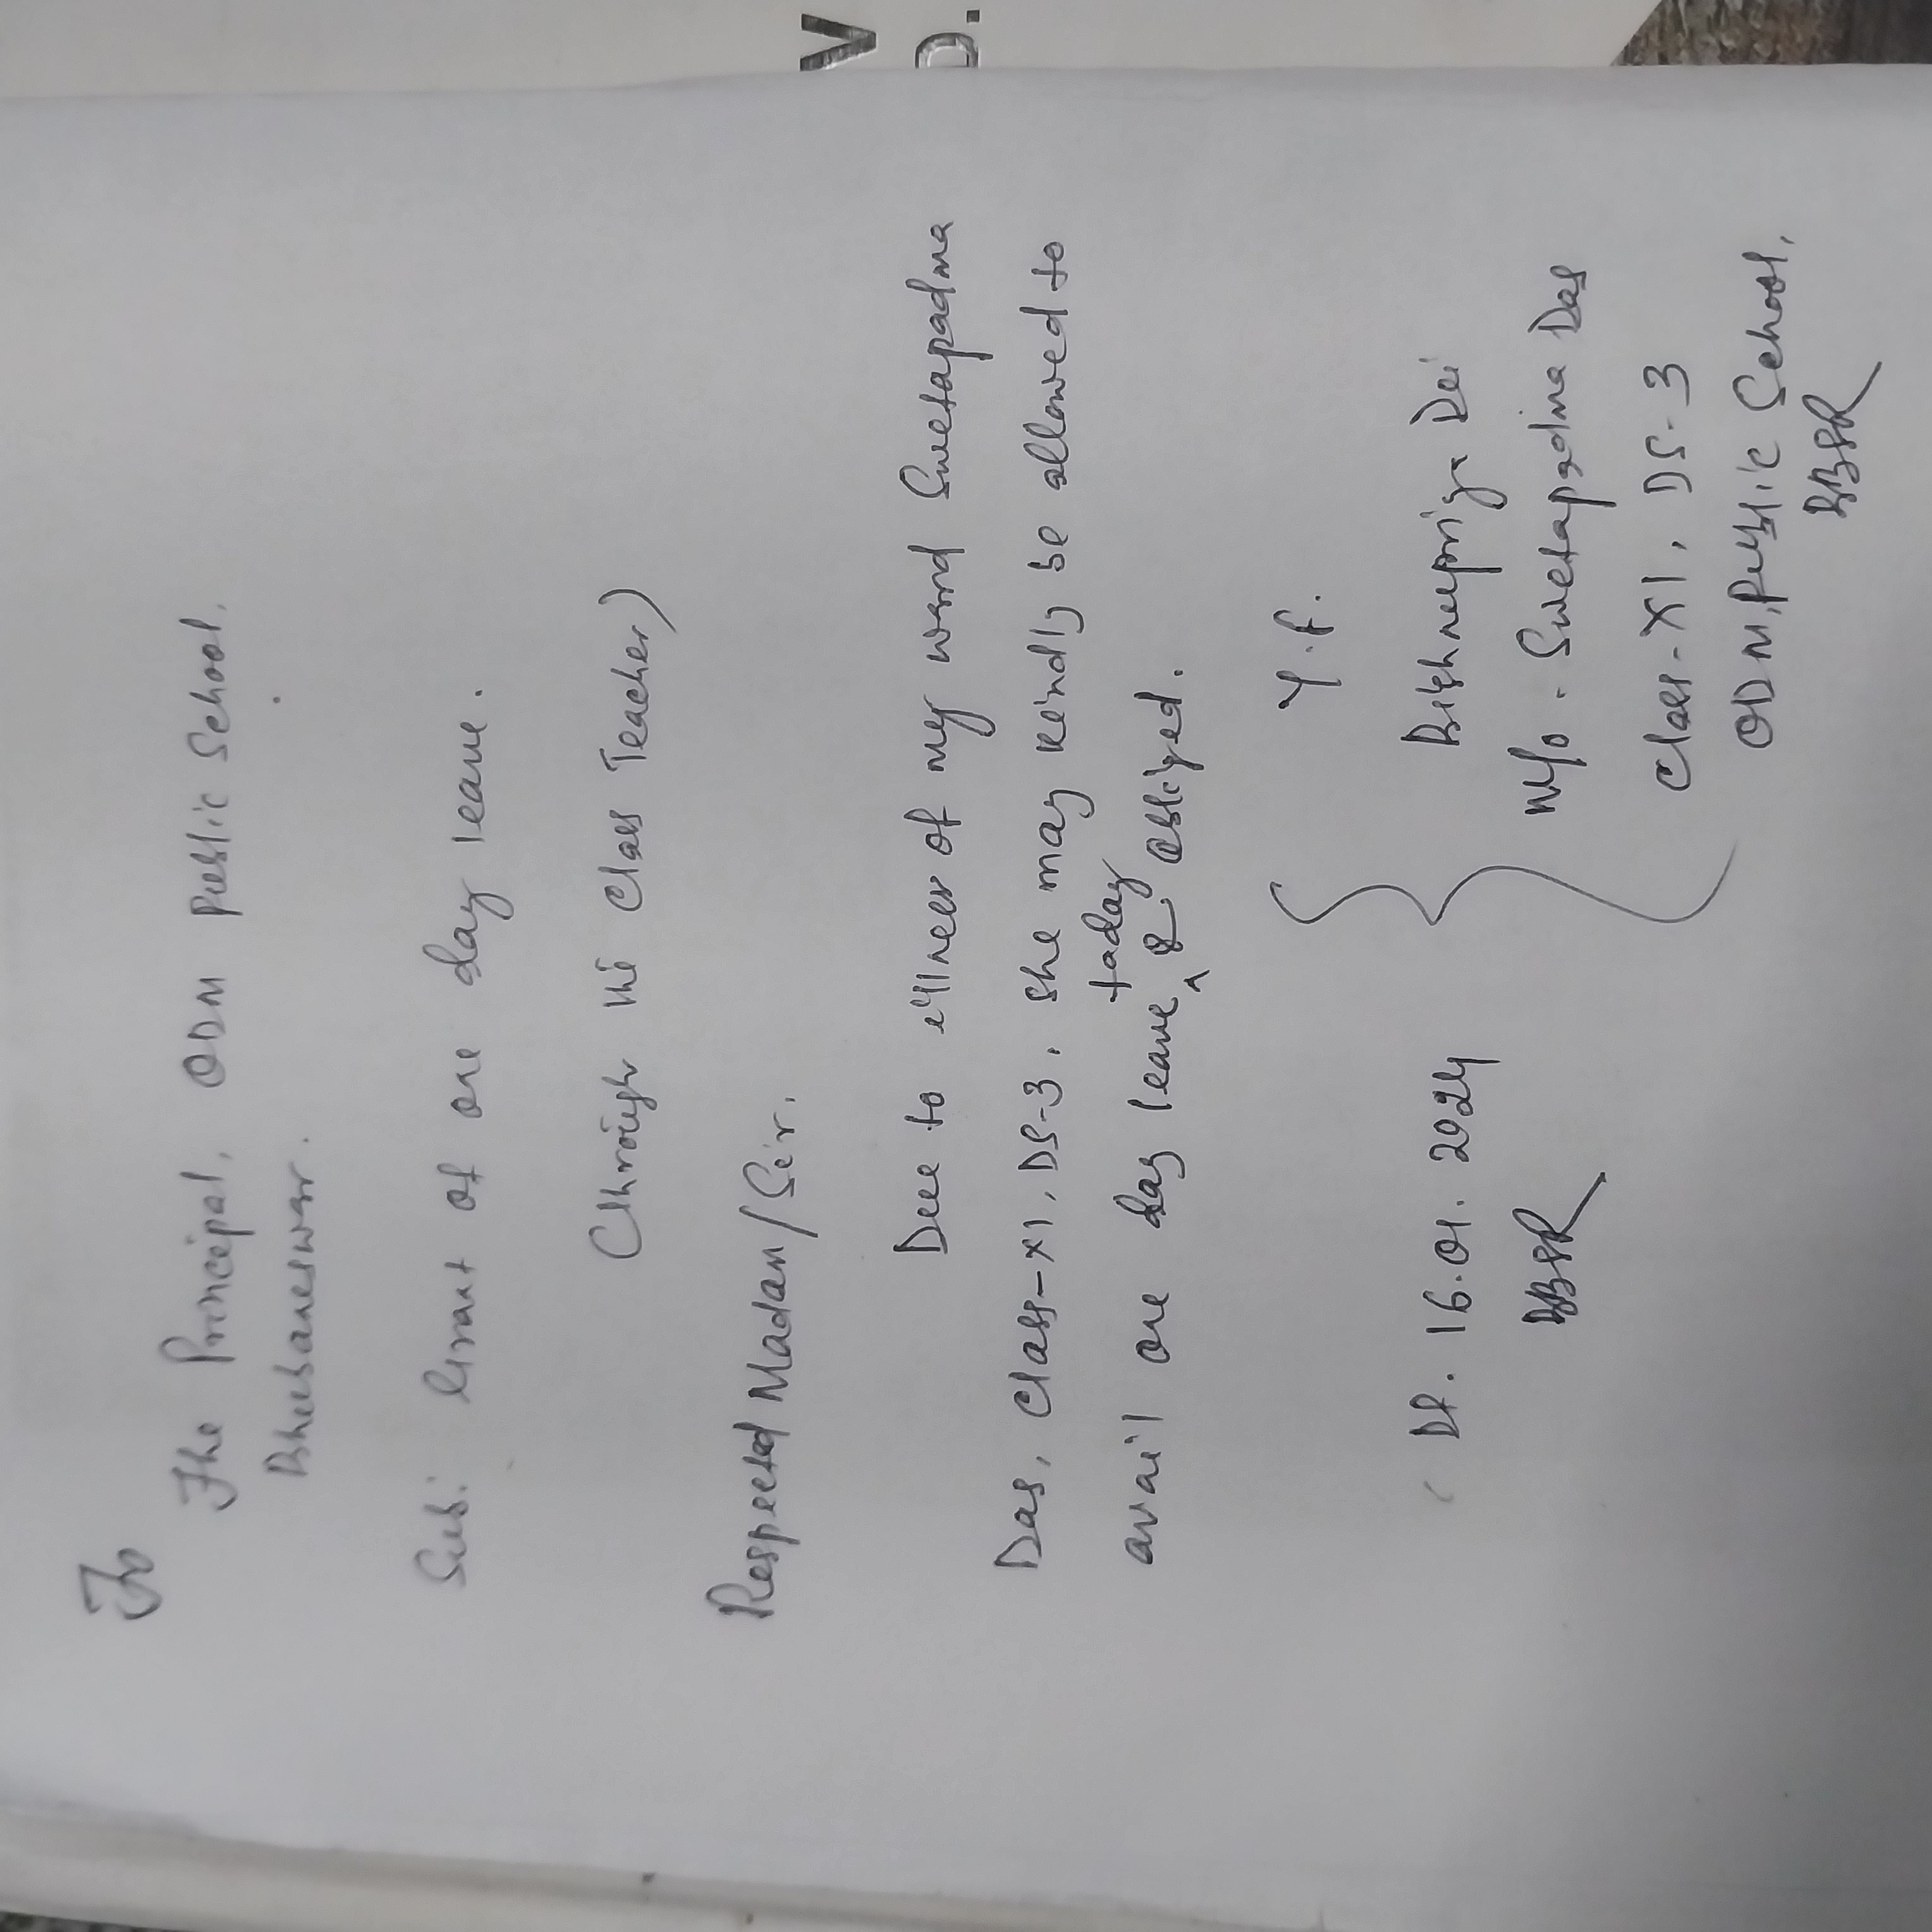 To
The Principal, ODM Public School,
Bhubaneswar.
Sub: Grant of one day leave.
(Through the Class Teacher)
Respected Madam/Sir,
Due to illness of my ward Swetapadma
Das, Class-XI, DS-3, she may kindly be allowed to
today
avail one day leave ^ & obliged.
Y.f.
Bishnupriya Dei
M/o. Swetapadma Das
Class-XI, DS-3
ODM, Public School,
BBSR
Dt. 16.01.2024
BBSR
V
D.